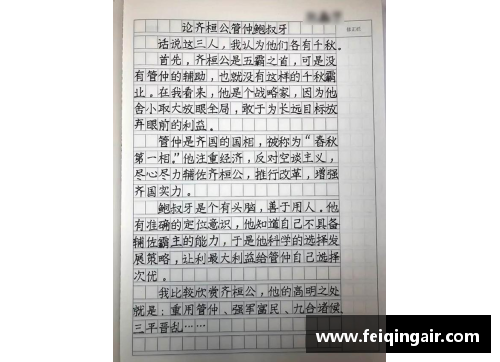 论齐桓公管仲鲍叔牙
话说这三人，我认为他们各有千秋。
首先，齐桓公是五霸之首，可是没
有管仲的辅助，也就没有这样的千秋霸
业。在我看来，他是个战略家，因为他
舍小取大放眼全局，敢于为长远目标放
弃眼前的利益。
管仲是齐国的国相，被称为“春秋
第一相。”他注重经济，反对空谈主义，
尽心尽力辅佐齐桓公，推行改革，增强
齐国实力。
鲍叔牙是个有头脑，善于用人。他
有准确的定位意识，他知道自己不具备
辅佐霸主的能力，于是他科学的选择发
展策略，让利最大利益给管仲自己选择
次优。
我比较欣赏齐桓公，他的高明之处
就是：重用管仲、强军富民、九合诸侯、
三平晋乱……
www.feiqingair.com